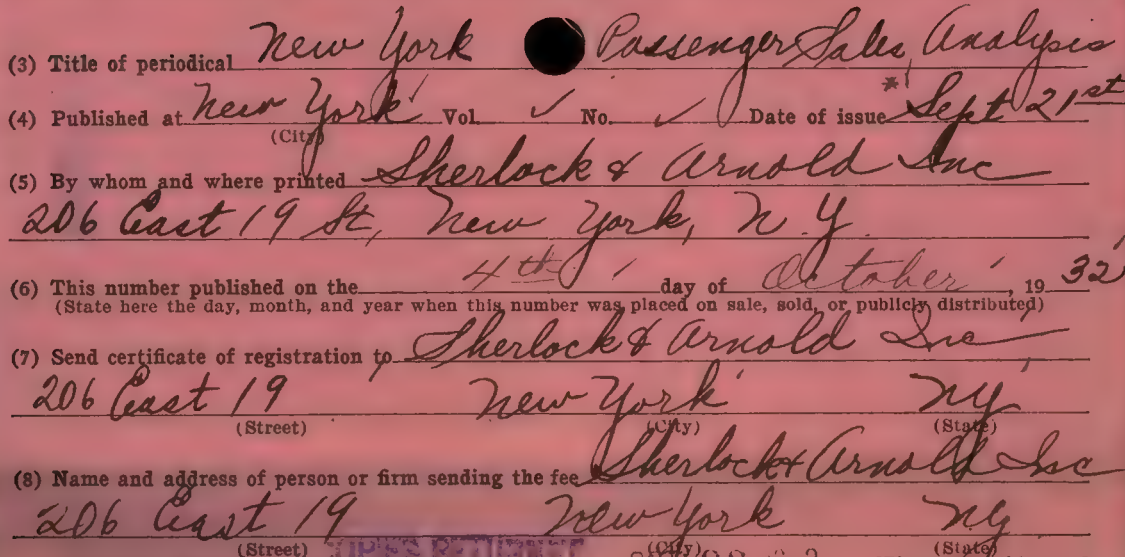 (3) Title of periodical New York Passenger Sales Analysis
(4) Published at New York Vol. ✓ No. ✓ Date of issue * Sept 21st
(City)
(5) By whom and where printed Sherlock & Arnold Inc
206 East 19 St, New York, N.Y.
(6) This number published on the 4th day of October, 1932
(State here the day, month, and year when this number was placed on sale, sold, or publicly distributed)
(7) Send certificate of registration to Sherlock & Arnold Inc
206 East 19 New York NY
(Street) (City) (State)
(8) Name and address of person or firm sending the fee Sherlock & Arnold Inc
206 East 19 New York NY
(Street) (City) (State)